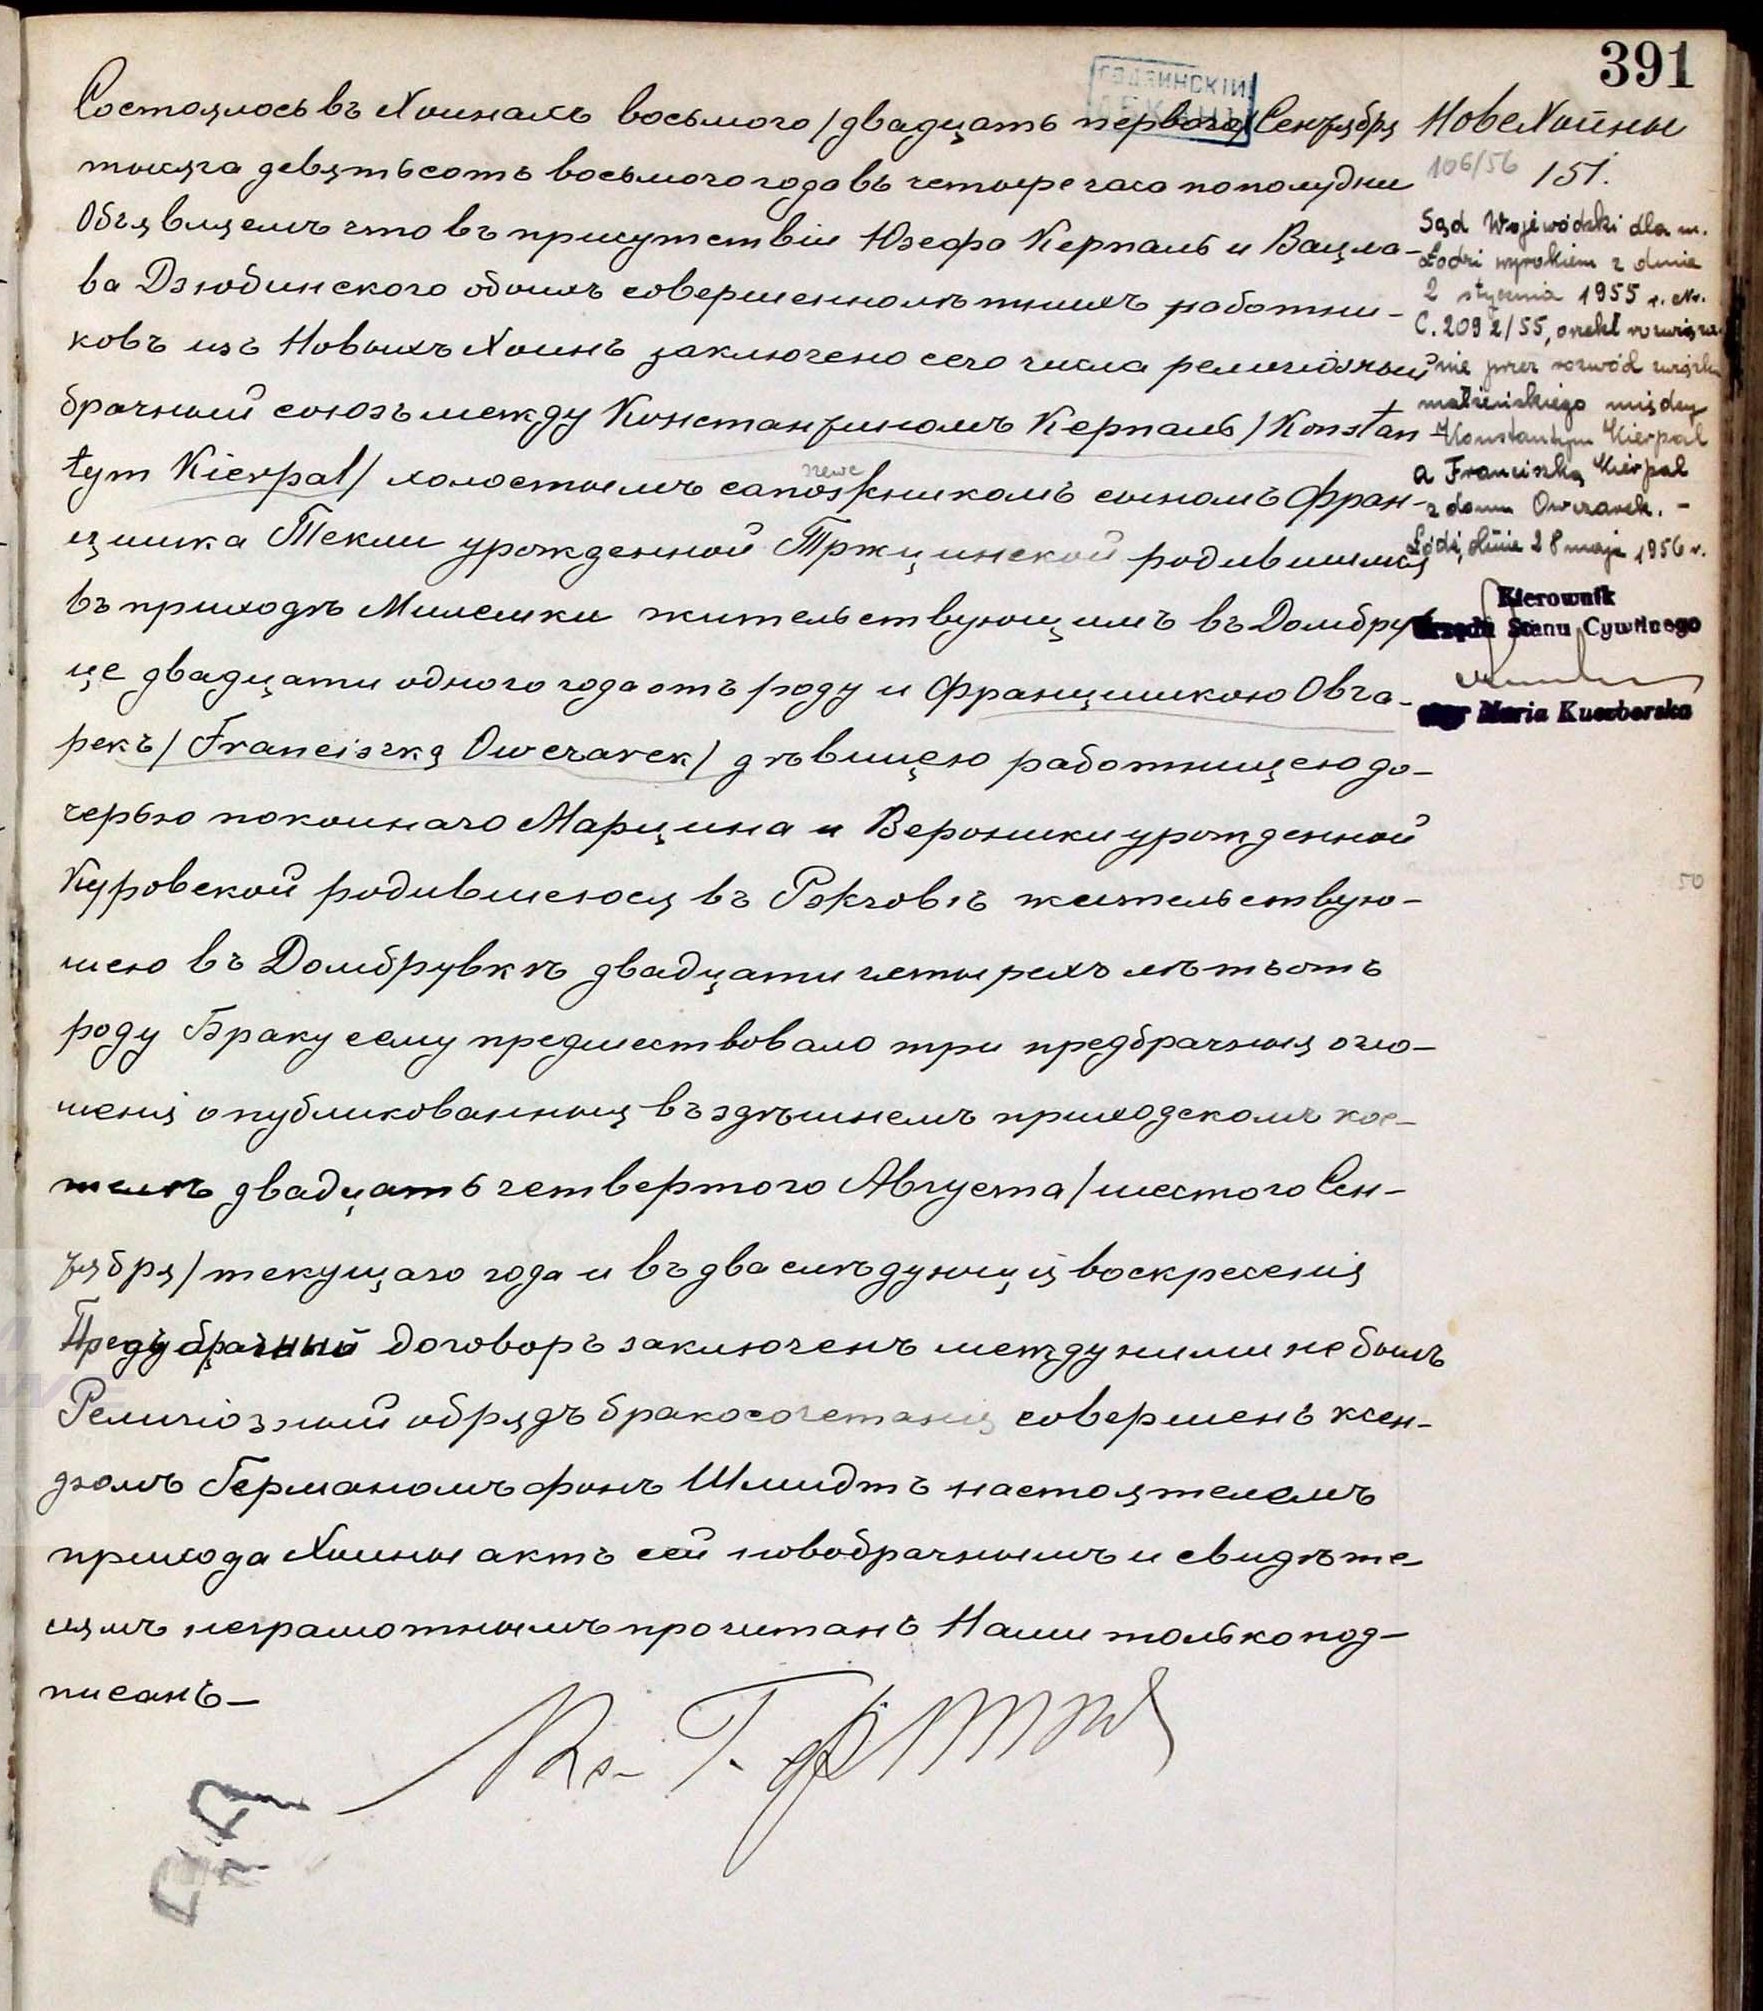 391
Состоялось въ Хоинахъ восьмого / двадцать первого / Сентября
тысяча девятьсотъ восьмого года въ четыре часа пополудни
Объявляемъ что въ присутствіи Юзефа Керпаль и Вацла-
ва Дзюбинского обоихъ совершеннолѣтнихъ работни-
ковъ изъ Новыхъ Хоинъ заключено сего числа религіозный
брачный союзъ между Константиномъ Керпаль / Konstan
tym Kierpal / холостымъ сапожникомъ сыномъ Фран-
цишка Текли урожденной Тржцинской родившимся
въ приходѣ Милешки жительствующимъ въ Домбру
це двадцати одного года отъ роду и Францишкою Овча-
рекъ / Franciszką Owczarek / дѣвицею работницею до-
черью покойнаго Марцина и Вероники урожденной
Куровской родившеюся въ Рэкговѣ жительствую-
щею въ Домбрувкѣ двадцати четырехъ лѣтъ отъ
роду Браку сему предшествовало три предбрачныя огло-
шенія опубликованныя въ здѣшнемъ приходскомъ кос-
телѣ двадцать четвертого Августа / шестого Сен-
тября / текущаго года и въ два слѣдующія воскресенія
Предъбрачный договоръ заключенъ между ними не былъ
Религіозный обрядъ бракосочетанія совершенъ ксен-
дзомъ Германомъ фонъ Шмидтъ настоятелемъ
прихода Хоины актъ сей новобрачнымъ и свидѣте-
лямъ неграмотнымъ прочитанъ Нами только под-
писанъ-
Нове Хойны
106/56 151.
Sąd Wojewódzki dla m.
Łodzi wyrokiem z dnia
2 stycznia 1955 r. Nr.
C. 2092/55, orzekł rozwiąza
nie przez rozwód związku
małżeńskiego między
Konstantym Kierpal
a Franciszką Kierpal
z domu Owczarek. -
Łódź, dnia 28 maja 1956 r.
Kierownik
Urzędu Stanu Cywilnego
Maria Kuczborska
50